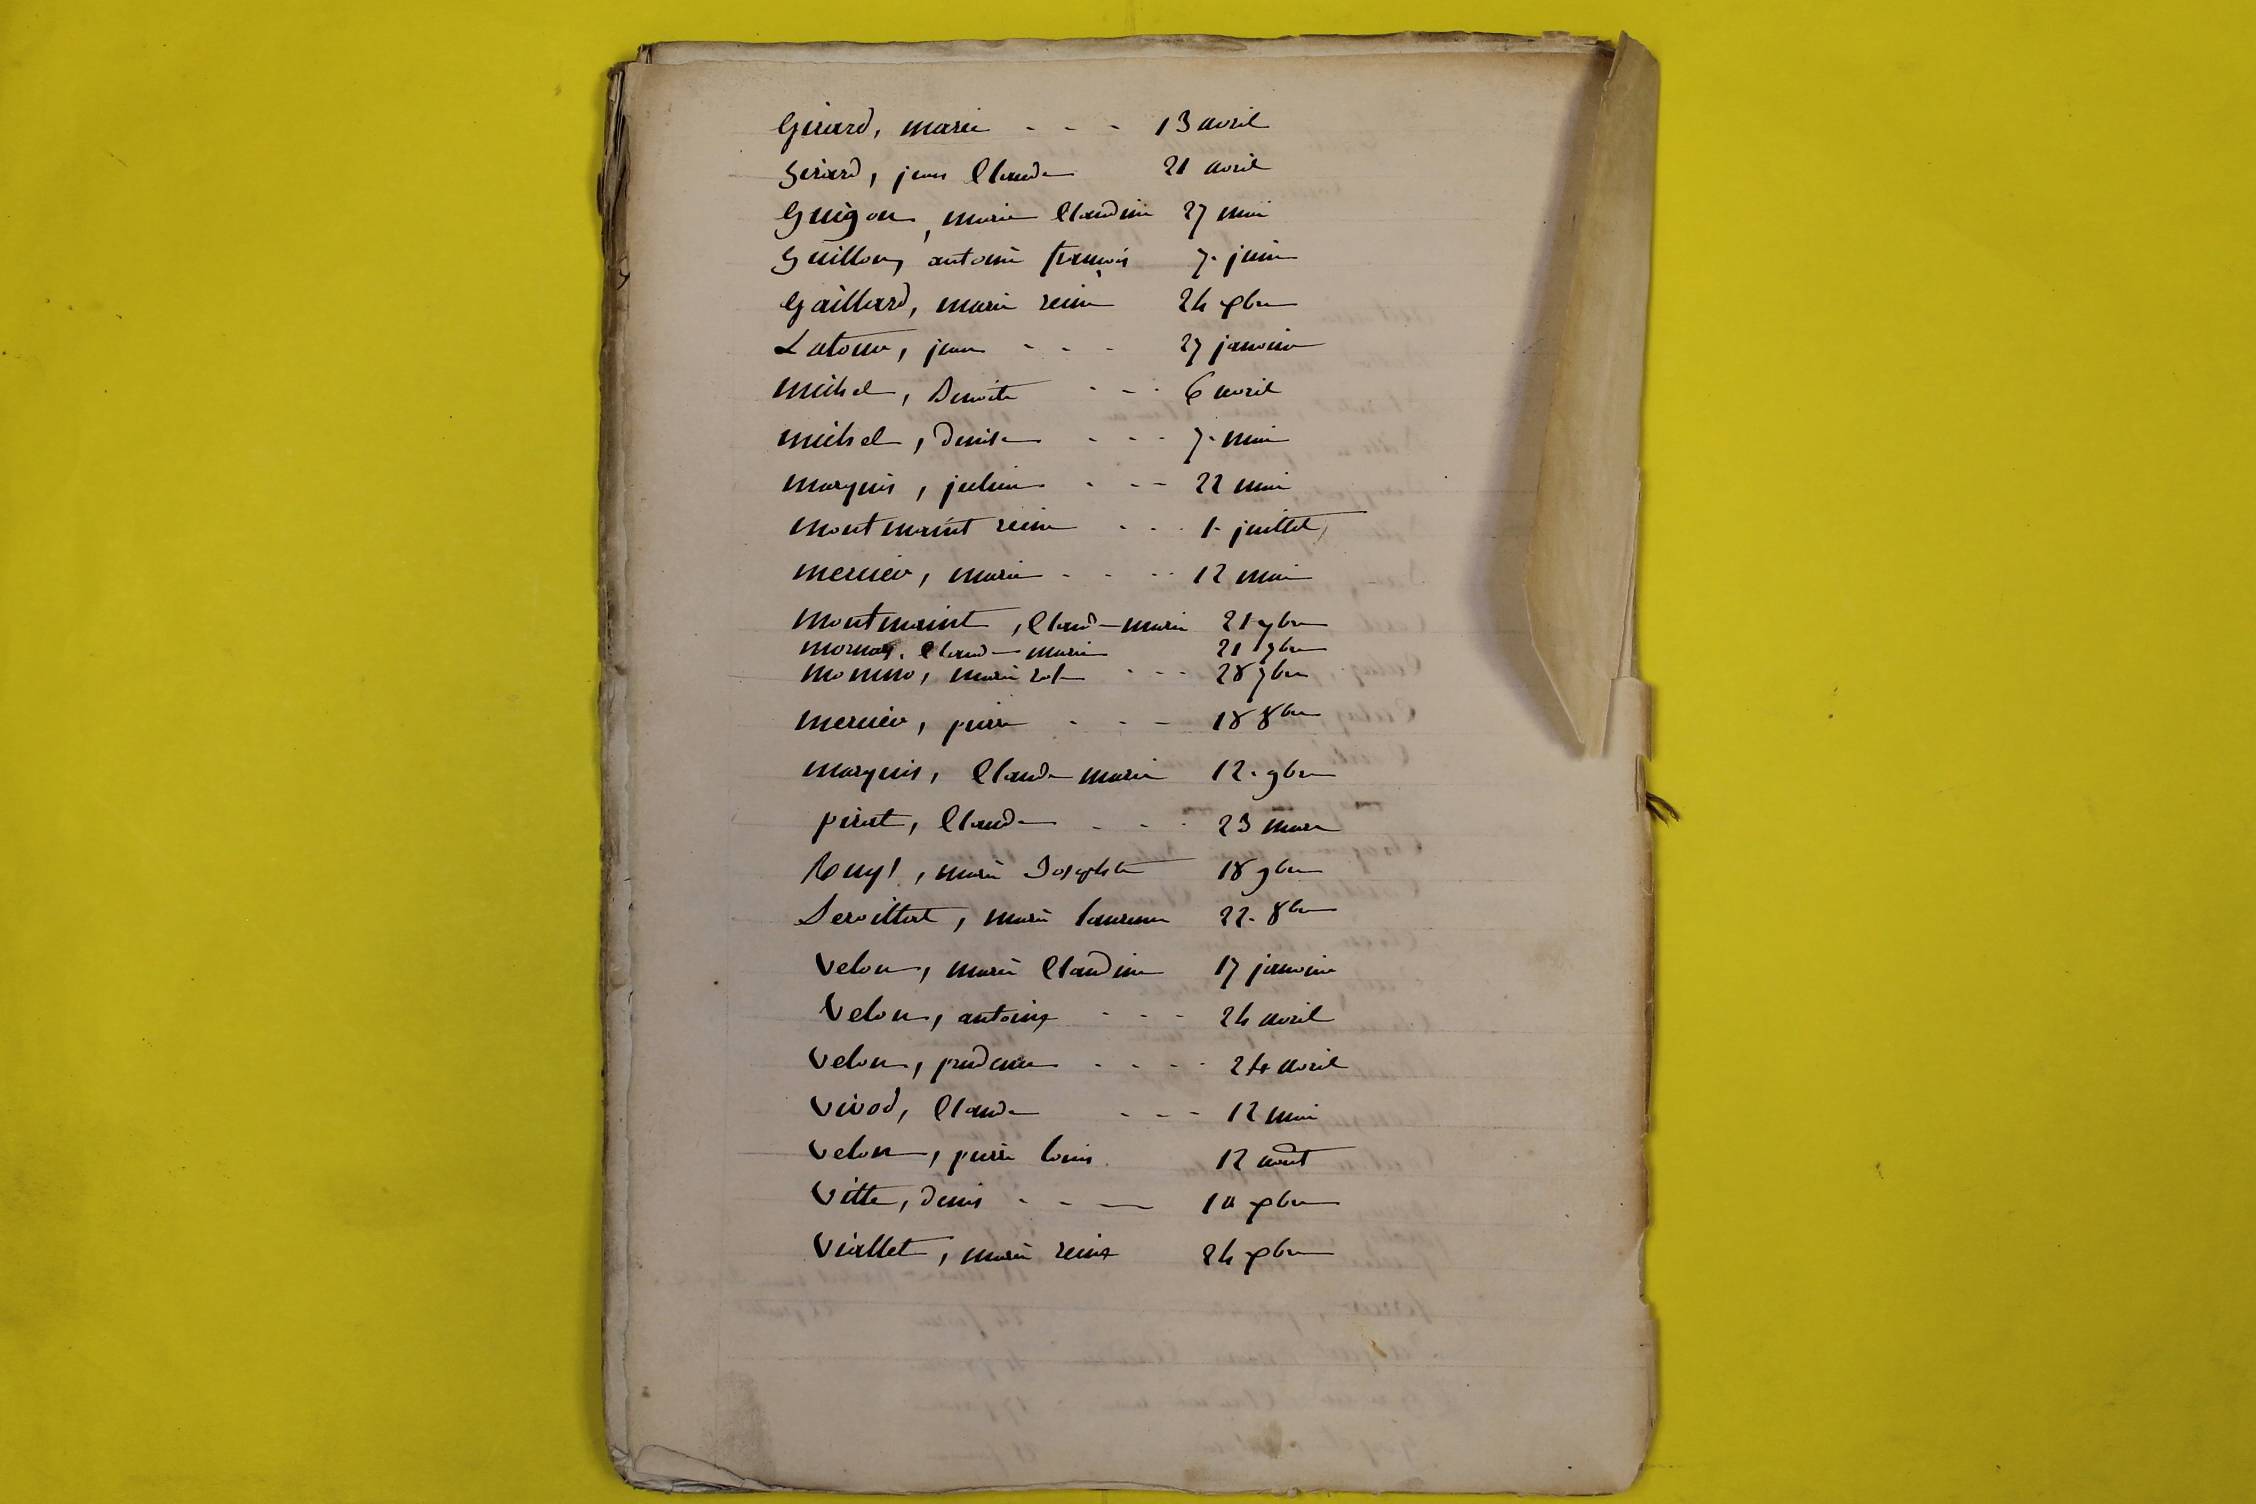 Girard, marie - - - 13 avril
Girard, jean Claude 21 avril
Guigon, marie Claudine 27 mai
Guillon, antoine françois 7. juin
Gaillard, marie reine 24 xbre
Latour, jean - - - 27 janvier
michel, Benoite - - - 6 avril
michel, denise - - - 7. mai
marquis, julien - - - 22 mai
montmaint reine - - - 1. juillet
mercier, marie - - - 12 mai
montmaint, Claude marie 21 9bre
mornay, Claude marie 21 9bre
monino, marie rose - - - 28 9bre
mercier, pierre - - - 18 8bre
marquis, Claude marie 12. 9bre
pirat, Claude - - - 23 mars
marie Josephte 18 9bre
Servillat, marie laurence 22. 8bre
Velon, marie Claudine 17 janvier
Velon, antoine - - - 24 avril
Velon, prudence - - - - 24 avril
Vivod, Claude - - - 12 mai
Velon, pierre louis 12 août
Vitte, denis - - - 10 xbre
Viallet, marie reine 24 xbre